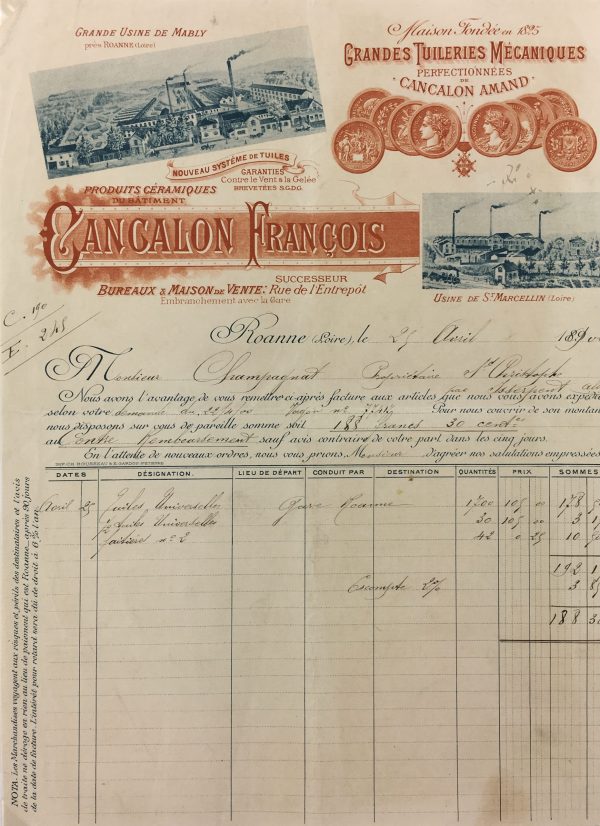 GRANDE USINE DE MABLY
près ROANNE (Loire)
Maison Fondée en 1825
GRANDES TUILERIES MÉCANIQUES
PERFECTIONNÉES
DE
CANCALON AMAND
NOUVEAU SYSTÈME DE TUILES
GARANTIES
Contre le Vent & la Gelée
BREVETÉES S.G.D.G
PRODUITS CÉRAMIQUES
DU BÂTIMENT
CANCALON FRANÇOIS
SUCCESSEUR
BUREAUX & MAISON DE VENTE: Rue de l'Entrepôt
Embranchement avec la Gare
USINE DE ST MARCELLIN (Loire)
C. 190
F. 245
Roanne (Loire), le 25 Avril 189
Monsieur Champagnat Propriétaire St Christophe
par
Nous avons l'avantage de vous remettre ci-après facture aux articles que nous vous avons expédi
selon votre demande du 22/4/00 Wagon no Pour nous couvrir de son montan
nous disposons sur vous de pareille somme soit 188 francs 30 cent
au Contre Remboursement sauf avis contraire de votre part dans les cinq jours.
En l'attente de nouveaux ordres, nous vous prions Monsieur d'agréer nos salutations empressées
DATES DÉSIGNATION. LIEU DE DÉPART CONDUIT PAR DESTINATION QUANTITÉS PRIX SOMMES
Avril 25 Tuiles Universelles Gare Roanne 1700 105 00 178
1/2 Tuiles Universelles 30 105 00 3 1
Faîtière no 2 42 0 25 10
192 1
Escompte 2% 3 8
188 3
NOTA. Les Marchandises voyagent aux risques et périls des destinataires et l'avis
de traite ne déroge en rien au lieu de paiement qui est Roanne, après 90 jours
de la date de facture. L'intérêt pour retard sera dû de droit à 6 % l'an.